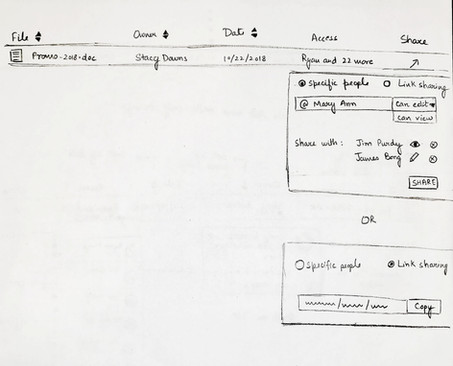 File Owner Date Access Share
Promo-2018.doc Stacy Downs 10/22/2018 Ryan and 22 more
Specific people Link sharing
@ Mary Ann can edit
can view
Share with: Jim Purdy
James Bong
SHARE
OR
Specific people Link sharing
Copy